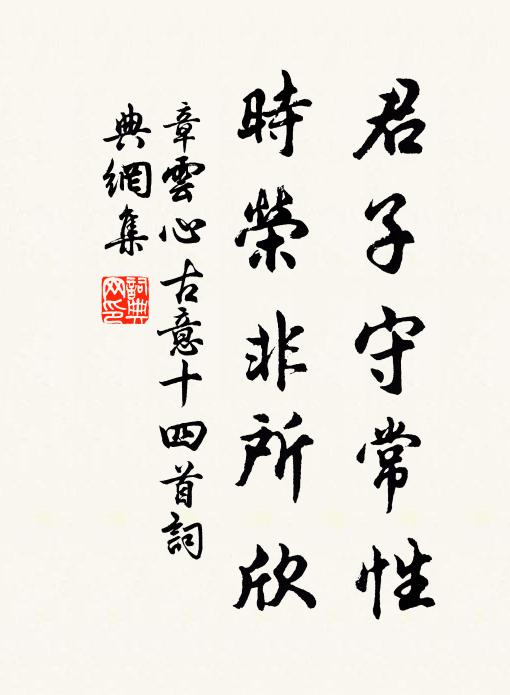 君子守常性
時榮非所欣
章雲心古意十四首詞
典網集
詞典
网印